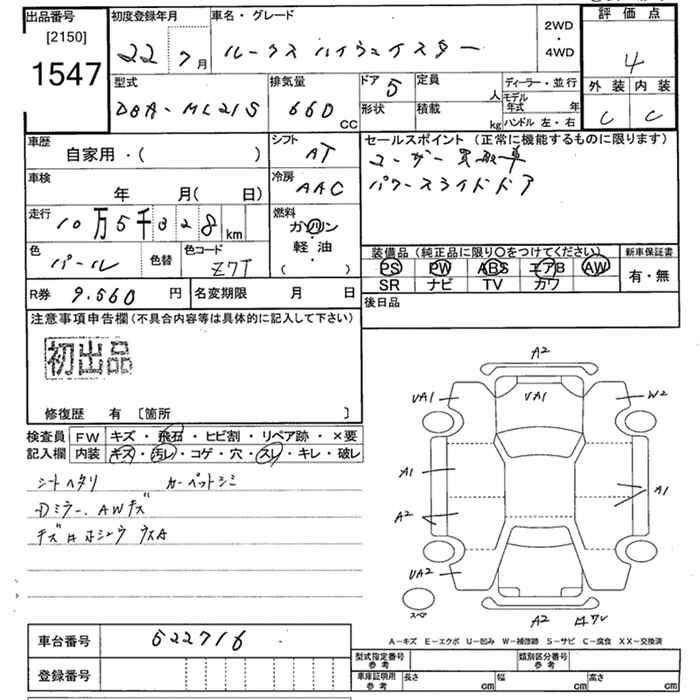 出品番号
[2150]
1547
初度登録年月
22 7月
車名・グレード
ルークス ハイウェイスター
2WD
・
4WD
評価点
4
外装 内装
C C
型式
DBA-ML21S
排気量
660 CC
ドア 5
形状
定員 人
積載 kg
ディーラー・並行
モデル年式 年
ハンドル 左・右
車歴
自家用・( )
シフト
AT
セールスポイント (正常に機能するものに限ります)
ユーザー買取車
パワースライドドア
車検
年 月(日)
冷房
AAC
走行
10万5千328km
燃料
ガソリン
・
軽油
( )
色
パール
色替
色コード
Z7T
装備品(純正品に限り○をつけてください)
PS PW ABS エアB AW
SR ナビ TV カワ
新車保証書
有・無
R券 9.560円
名変期限 月 日
後日品
注意事項申告欄(不具合内容等は具体的に記入して下さい)
初出品
修復歴 有 [箇所 ]
検査員
記入欄
FW キズ・飛石・ヒビ割・リペア跡・×要
内装 キズ・汚レ・コゲ・穴・スレ・キレ・破レ
シートヘタリ カーペットシミ
Dミラー、AWキズ
キズ#ホシュウ ウスA
A2
UA1 UA1 W2
A1 A1
A2
UA2
スペア
A2
A-キズ E-エクボ U-凹み W-補修跡 S-サビ C-腐食 XX-交換済
車台番号 522716
登録番号
型式指定番号
参考
類別区分番号
参考
車庫証明用
参考
長さ cm 幅 cm 高さ cm